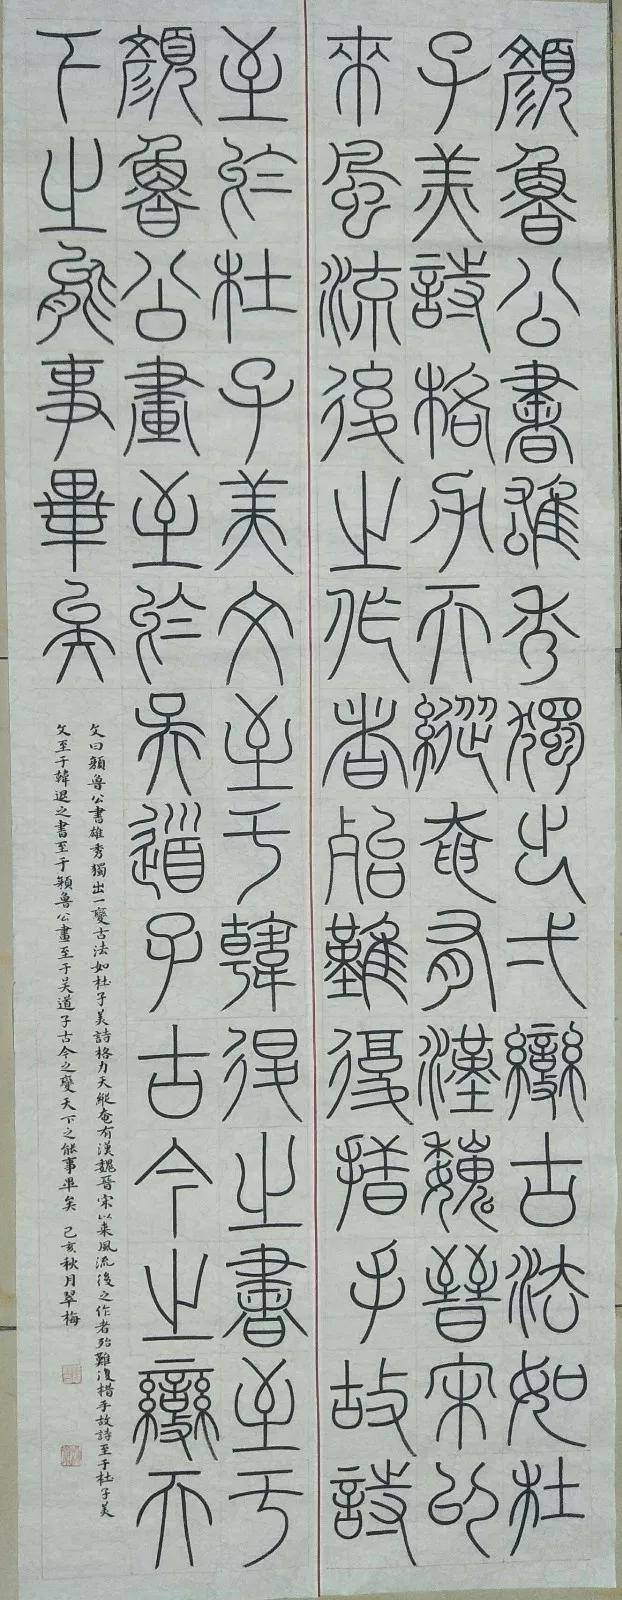 顏魯公書雄秀獨出一變古法如杜
子美詩格力天縱奄有漢魏晉宋以
來風流後之作者殆難復措手故詩
至於杜子美文至于韓退之書至于
顏魯公畫至於吳道子古今之變天
下之能事畢矣
文曰顏魯公書雄秀獨出一變古法如杜子美詩格力天縱奄有漢魏晉宋以来風流後之作者殆難復措手故詩至于杜子美
文至于韓退之書至于顏魯公畫至于吴道子古今之變天下之能事畢矣 己亥秋月翠梅